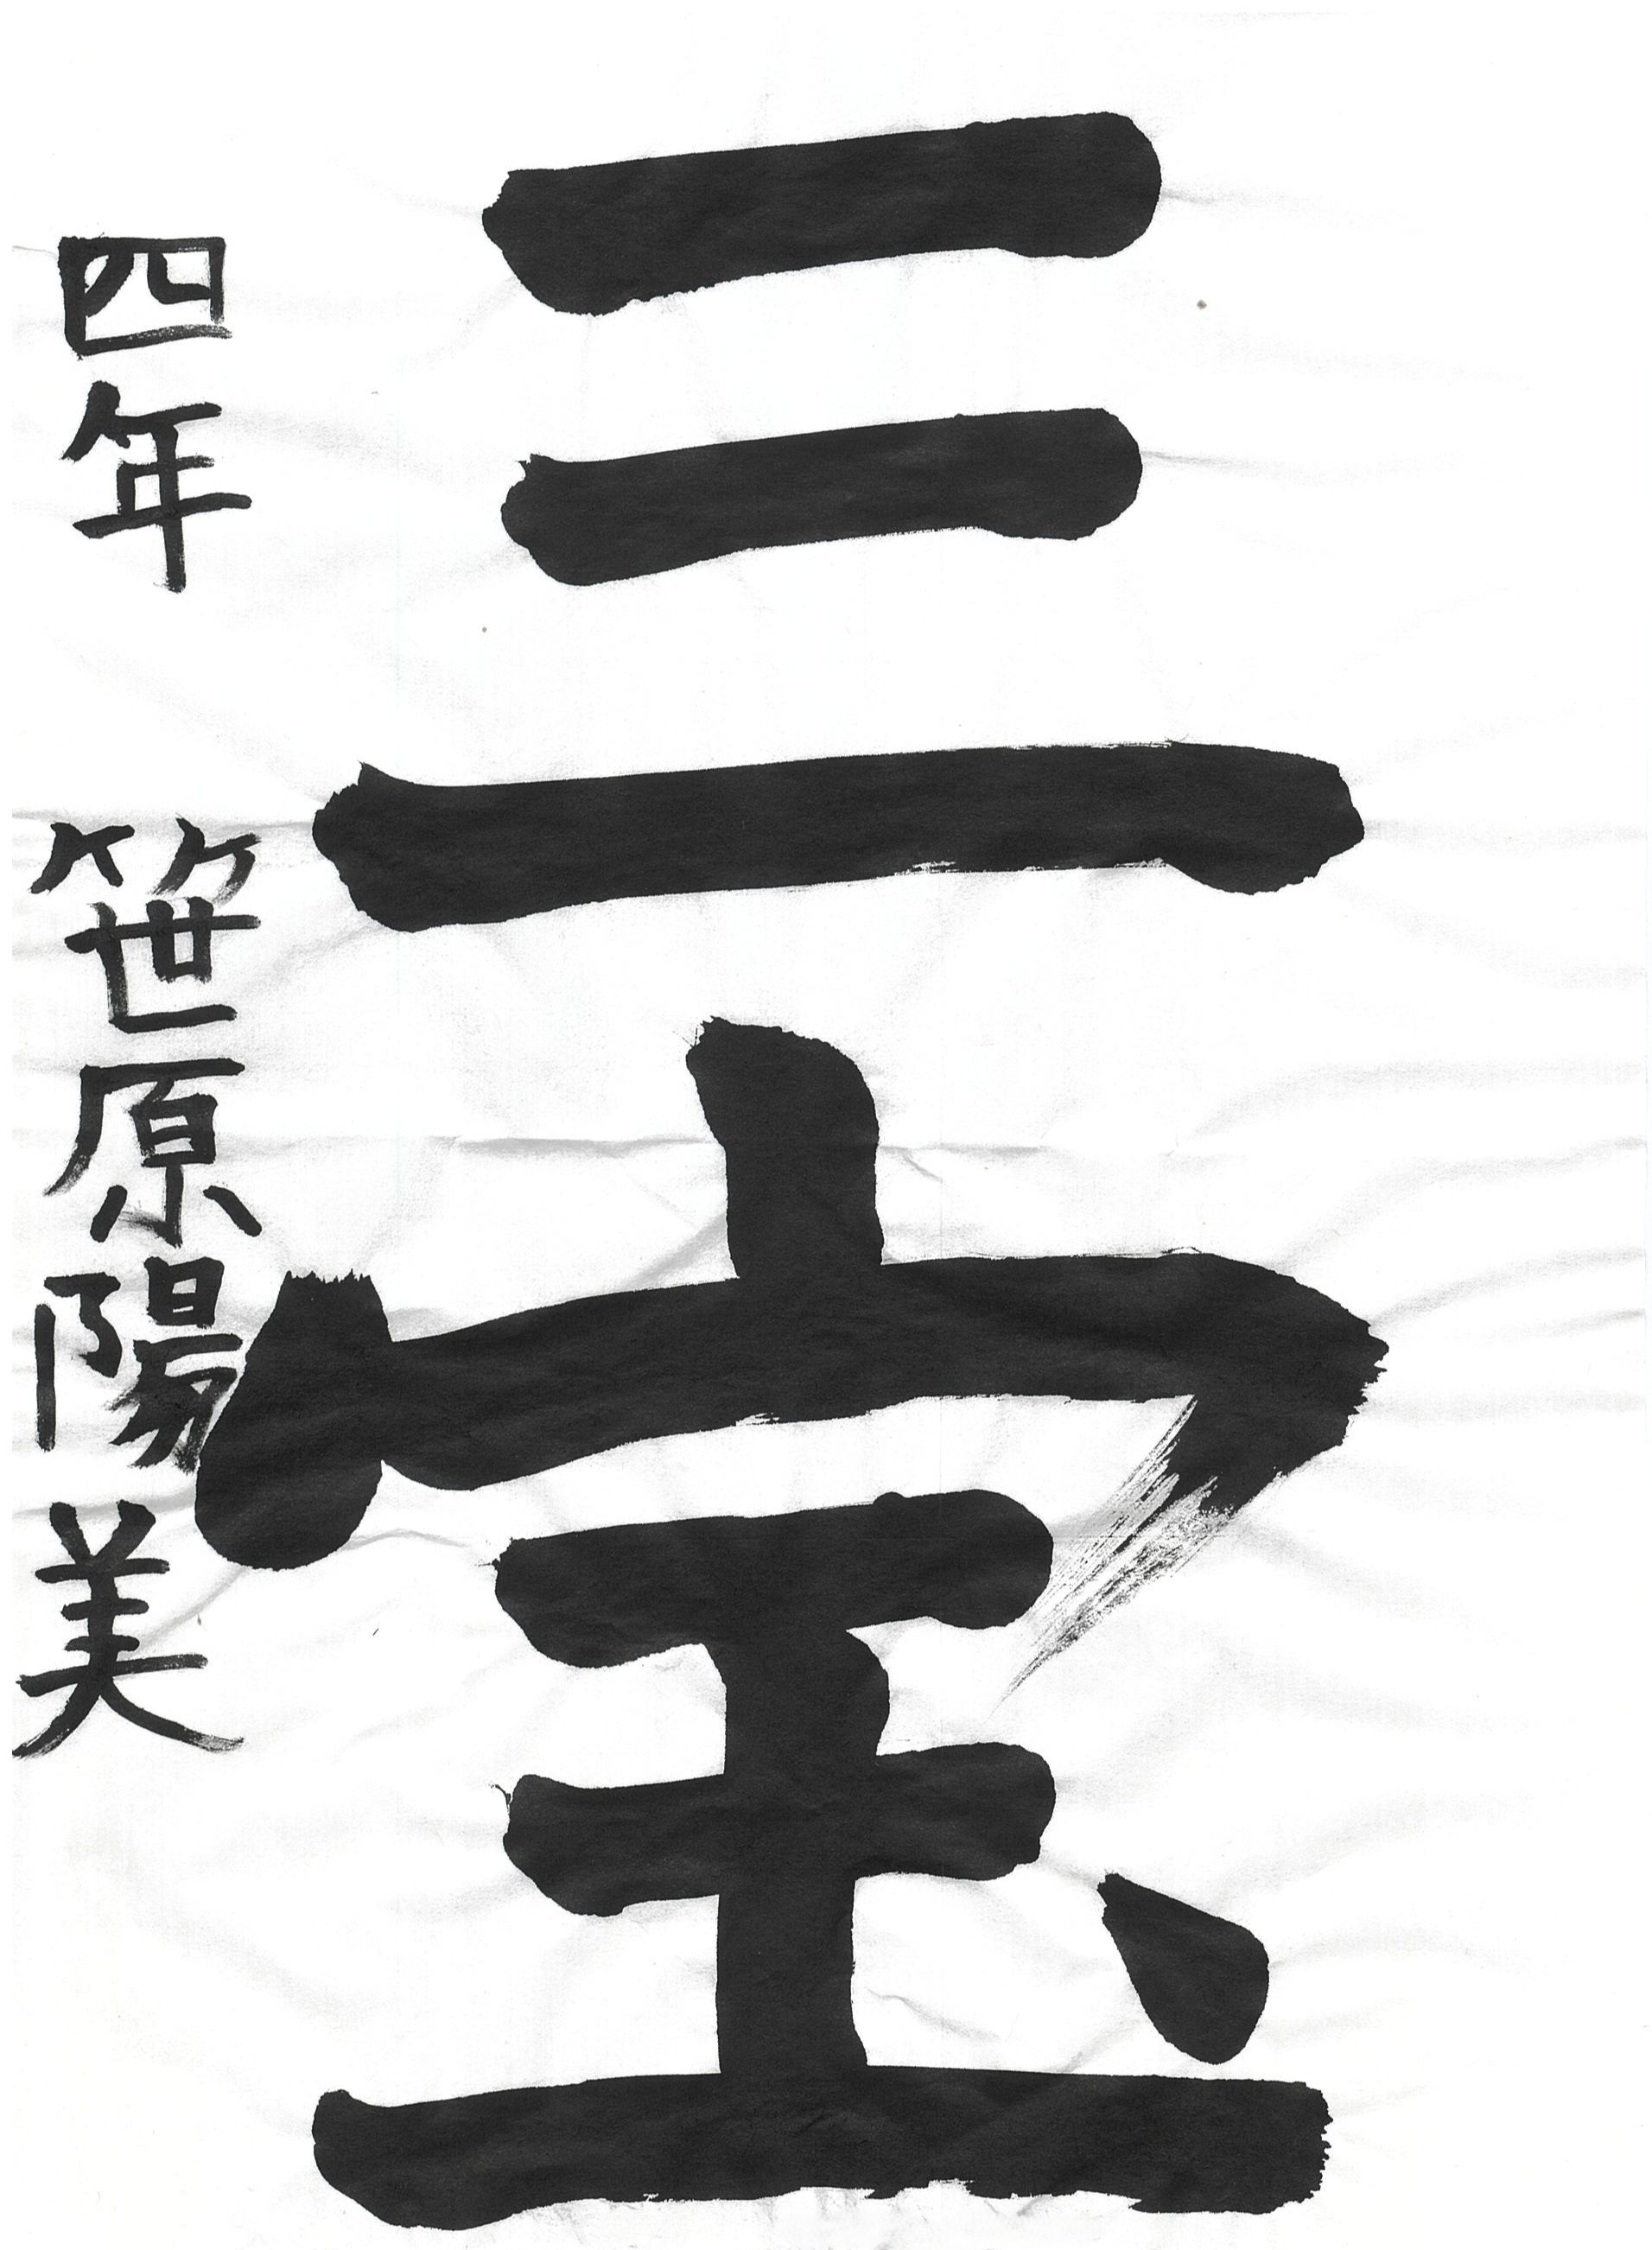 三宝
四年 笹原陽美